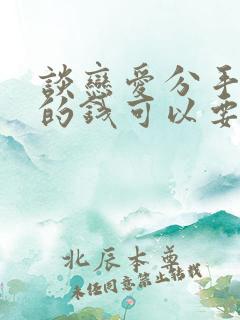 談戀愛分手
的錢可以要
北辰本尊
未經同意禁止轉載